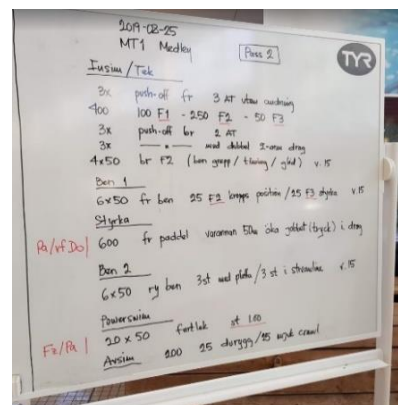 2019-08-25
MT1 Medley
Pass 2
TYR
Insim/Tek
3x push-off fr 3 AT utan andning
400 100 F1 - 250 F2 - 50 F3
3x push-off br 2 AT
3x med dubbel drag
4x50 br F2 (ben grepp / / glid) v.15
Ben 1
6x50 fr ben 25 F2 kropps position / 25 F3 styrka v.15
Styrka
Pa/vf Do| 600 fr paddel varannan 50m öka jobbet (tryck) i drag
Ben 2
6x50 ry ben 3st med platta / 3 st i streamline v.15
Powerswim
Fz/Pa | 20x50 fartlek st 1.00
Avsim 200 25 / 25 mjuk crawl